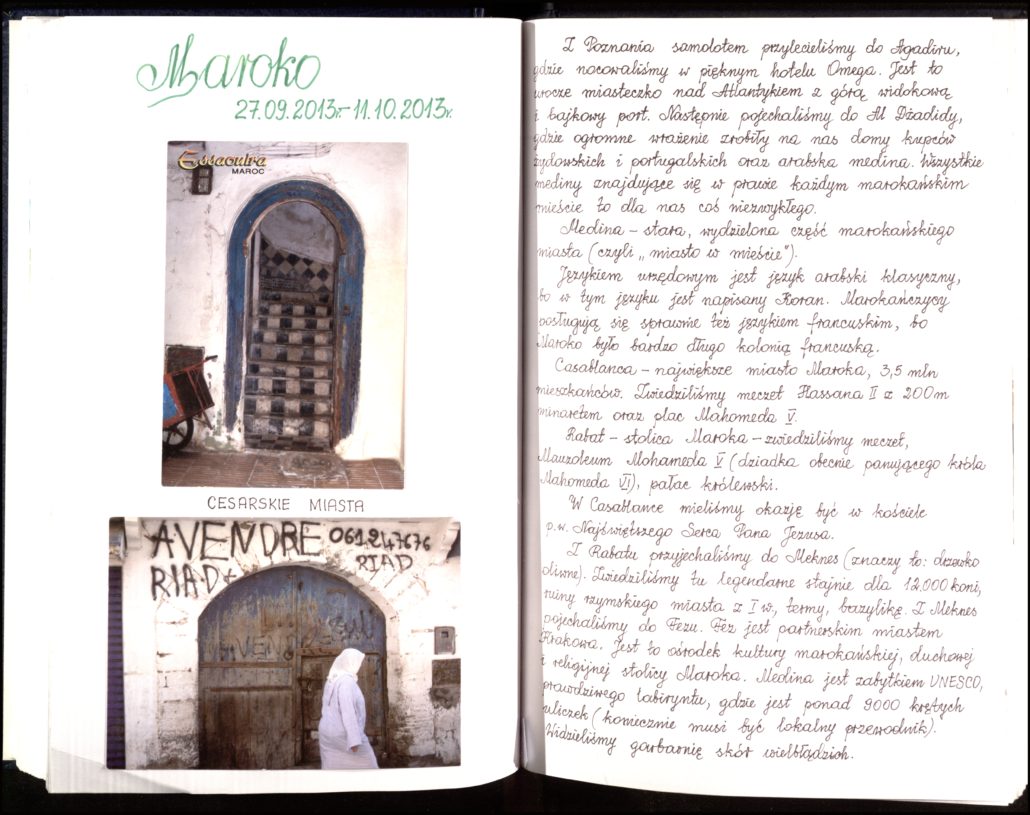 Maroko
27.09.2013r. – 11.10.2013r.
Essaouira
MAROC
CESARSKIE MIASTA
A VENDRE 061247676
RIAD
RIAD
Z Poznania samolotem przylecieliśmy do Agadiru,
gdzie nocowaliśmy w pięknym hotelu Omega. Jest to
urocze miasteczko nad Atlantykiem z górą widokową
i bajkowy port. Następnie pojechaliśmy do Al Dżadidy,
gdzie ogromne wrażenie zrobiły na nas domy kupców
żydowskich i portugalskich oraz arabska medina. Wszystkie
mediny znajdujące się w prawie każdym marokańskim
mieście to dla nas coś niezwykłego.
Medina – stara, wydzielona część marokańskiego
miasta (czyli „miasto w mieście").
Językiem urzędowym jest język arabski klasyczny,
bo w tym języku jest napisany Koran. Marokańczycy
posługują się sprawnie też językiem francuskim, bo
Maroko było bardzo długo kolonią francuską.
Casablanca – największe miasto Maroka, 3,5 mln
mieszkańców. Zwiedziliśmy meczet Hassana II z 200m
minaretem oraz plac Mahomeda V.
Rabat – stolica Maroka – zwiedziliśmy meczet,
Mauzoleum Mohameda V (dziadka obecnie panującego króla
Mahomeda VI), pałac królewski.
W Casablance mieliśmy okazję być w kościele
p.w. Najświętszego Serca Pana Jezusa.
Z Rabatu przyjechaliśmy do Meknes (znaczy to: drzewko
oliwne). Zwiedziliśmy tu legendarne stajnie dla 12.000 koni,
ruiny rzymskiego miasta z I w., termy, bazylikę. Z Meknes
pojechaliśmy do Fezu. Fez jest partnerskim miastem
Krakowa. Jest to ośrodek kultury marokańskiej, duchowej
i religijnej stolicy Maroka. Medina jest zabytkiem UNESCO,
prawdziwego labiryntu, gdzie jest ponad 9000 krętych
uliczek (koniecznie musi być lokalny przewodnik).
Widzieliśmy garbarnię skór wielbłądzich.